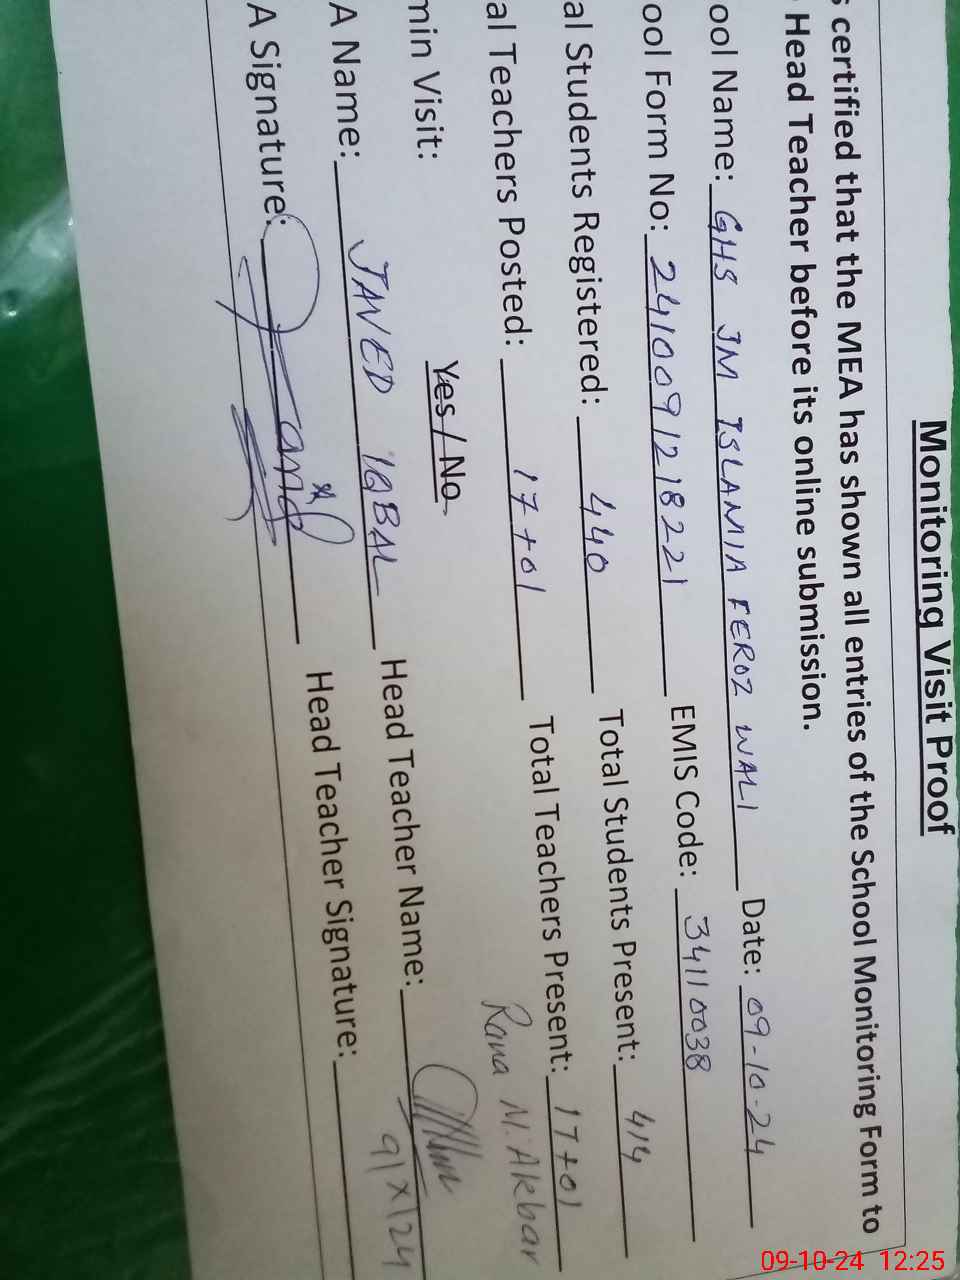 Monitoring Visit Proof
s certified that the MEA has shown all entries of the School Monitoring Form to
Head Teacher before its online submission.
ool Name: GHS JM ISLAMIA FEROZ WALI Date: 09-10-24
ool Form No: 2410091218221 EMIS Code: 34110038
al Students Registered: 440 Total Students Present: 414
al Teachers Posted: 17+01 Total Teachers Present: 17+01
min Visit: Yes / No Rana M. Akbar
A Name: JAVED IQBAL Head Teacher Name:
A Signature: Head Teacher Signature: 9/X/24
09-10-24 12:25